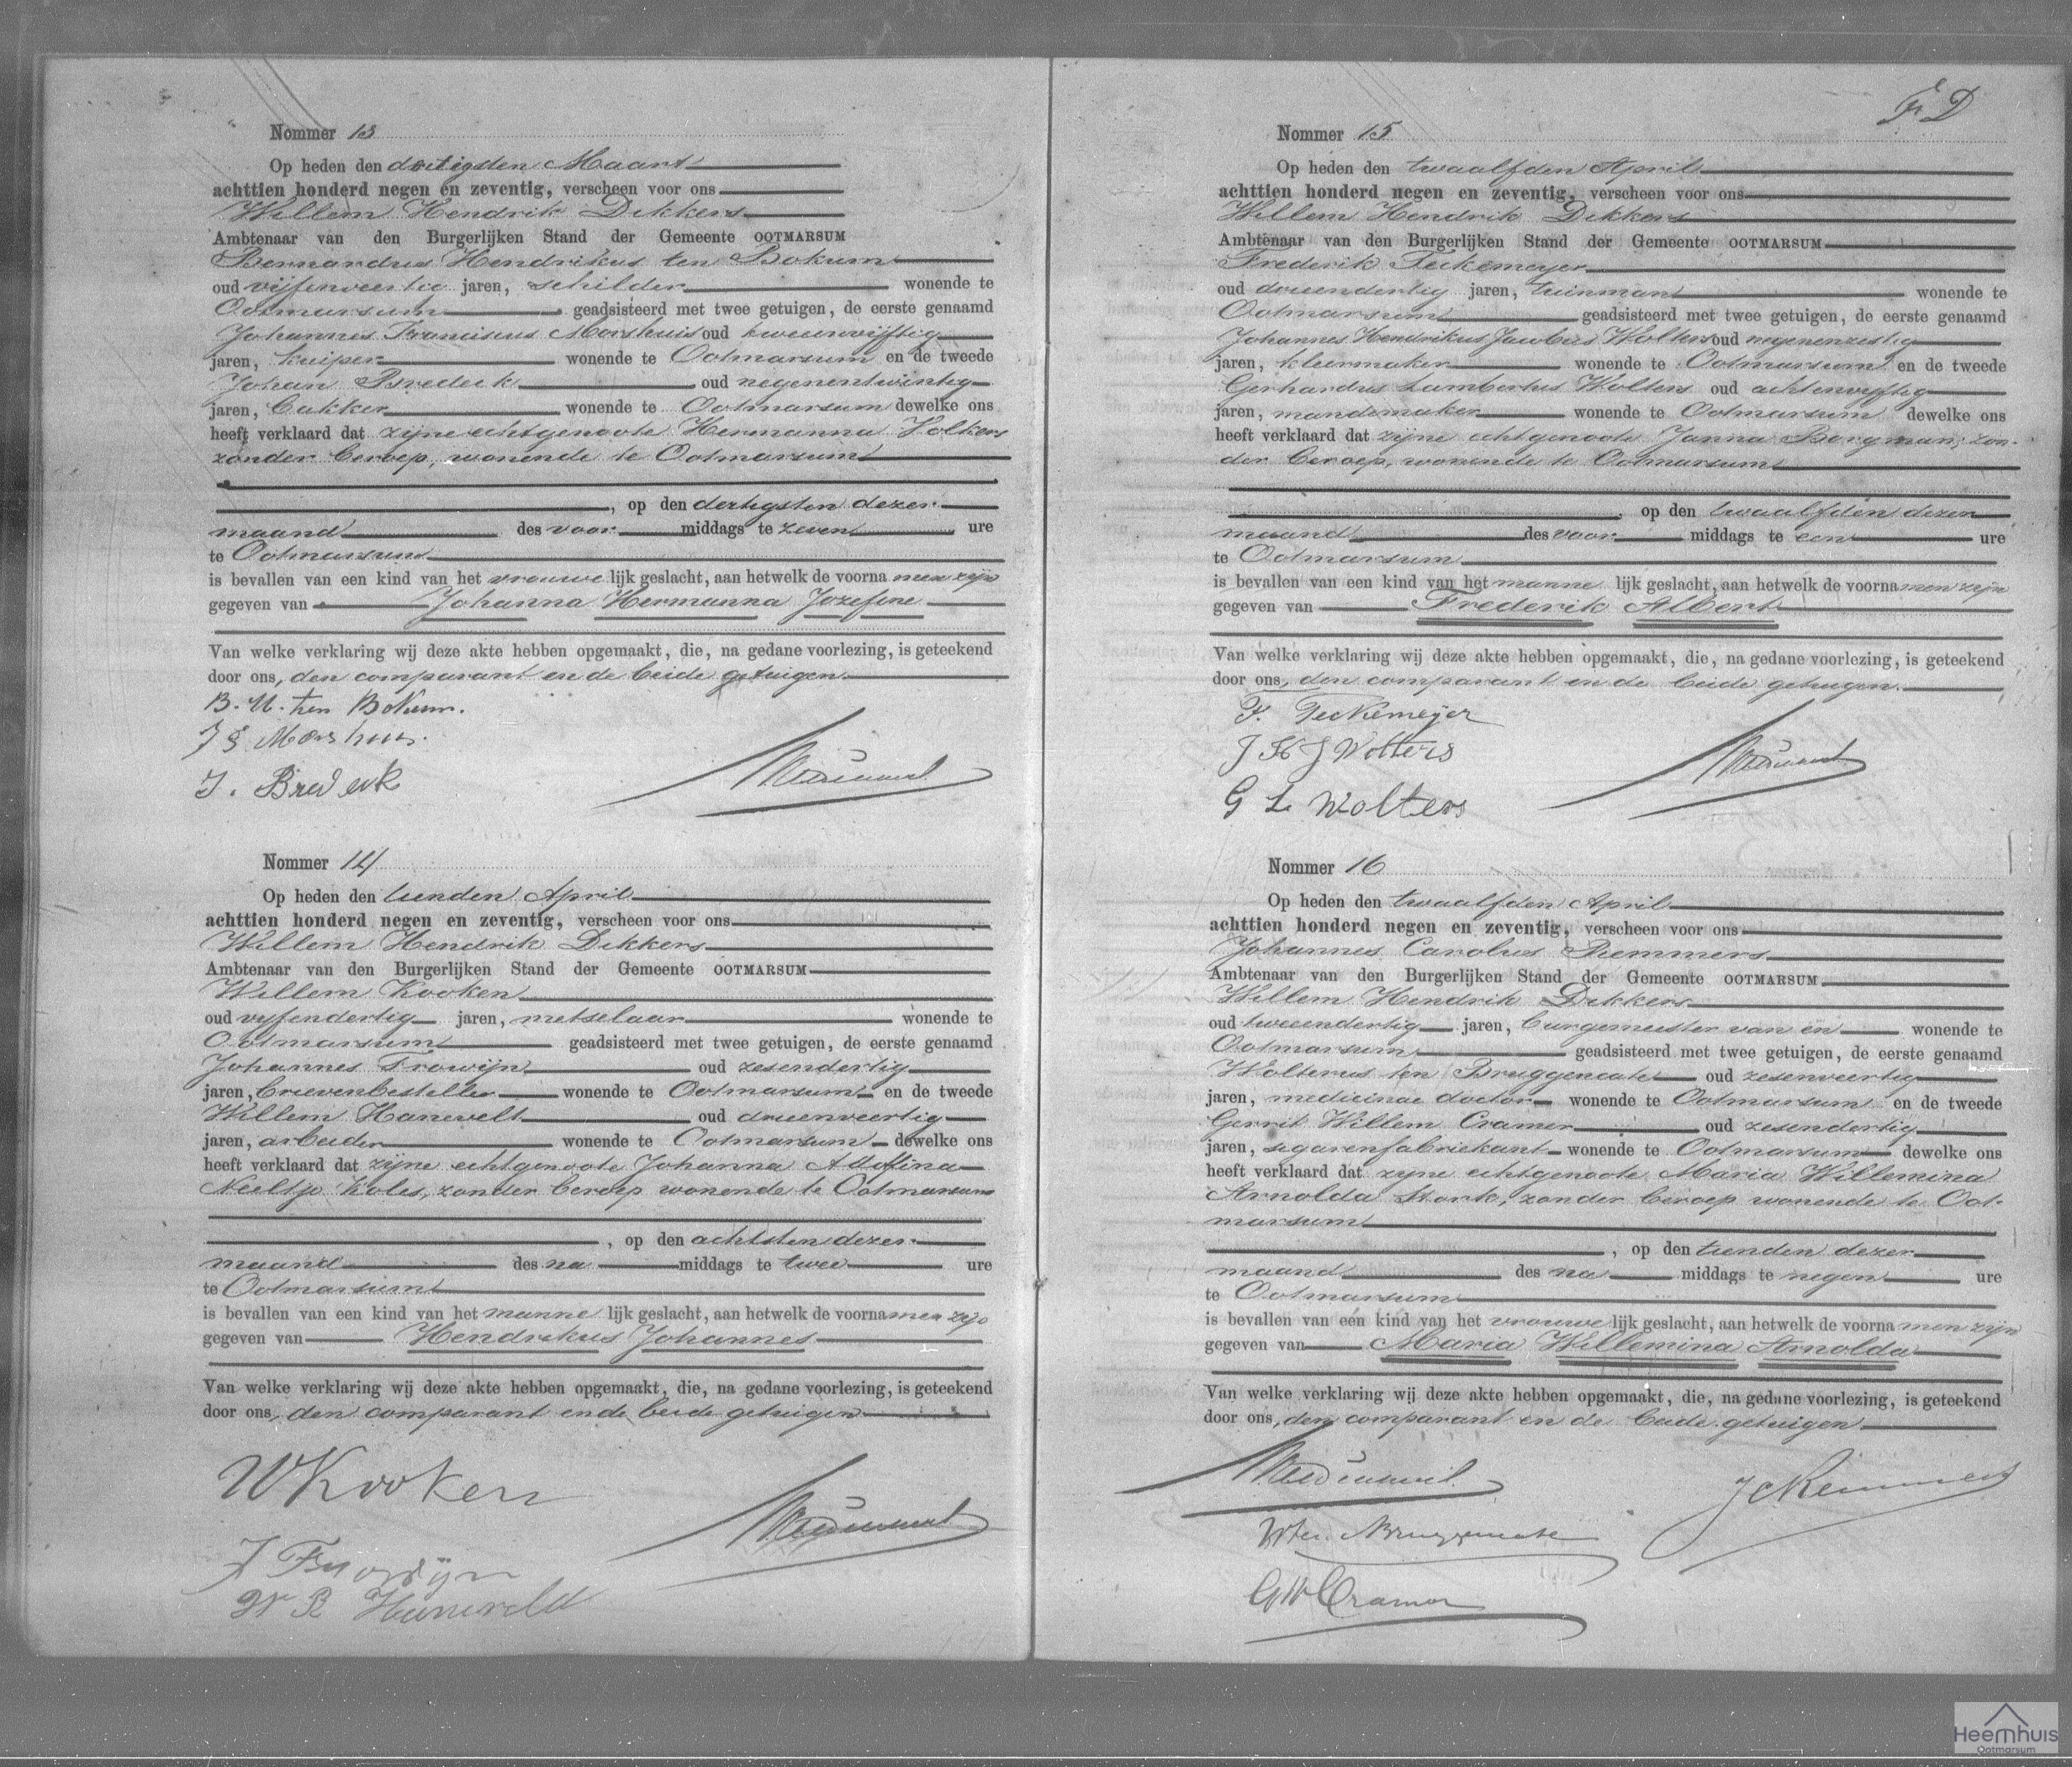 Nommer 13
Op heden den dertigsten Maart
achttien honderd negen en zeventig, verscheen voor ons
Willem Hendrik Dikkers
Ambtenaar van den Burgerlijken Stand der Gemeente OOTMARSUM
Bernardus Hendrikus ten Bokum
oud vijfenveertig jaren, schilder wonende te
Ootmarsum geadsisteerd met twee getuigen, de eerste genaamd
Johannes Franciscus Morshuis oud tweeenvijftig
jaren, kuiper wonende te Ootmarsum en de tweede
Johan Bredeck oud negenentwintig
jaren, bakker wonende te Ootmarsum dewelke ons
heeft verklaard dat zijne echtgenoote Hermanna Volkers
zonder beroep, wonende te Ootmarsum
, op den dertigsten dezer
maand des voor middags te zeven ure
te Ootmarsum
is bevallen van een kind van het vrouwe lijk geslacht, aan hetwelk de voorna men zijn
gegeven van Johanna Hermanna Jozefine
Van welke verklaring wij deze akte hebben opgemaakt, die, na gedane voorlezing, is geteekend
door ons, den comparant en de beide getuigen
B. H. ten Bokum.
J F Morshuis.
J. Bredeck
Nommer 14
Op heden den tienden April
achttien honderd negen en zeventig, verscheen voor ons
Willem Hendrik Dikkers
Ambtenaar van den Burgerlijken Stand der Gemeente OOTMARSUM
Willem Kooken
oud vyfendertig jaren, metselaar wonende te
Ootmarsum geadsisteerd met twee getuigen, de eerste genaamd
Johannes Frowijn oud zesendertig
jaren, brievenbesteller wonende te Ootmarsum en de tweede
Willem Hanevelt oud drieenveertig
jaren, arbeider wonende te Ootmarsum dewelke ons
heeft verklaard dat zijne echtgenoote Johanna Adolfina
Neeltje Koles, zonder beroep wonende te Ootmarsum
, op den achtsten dezer
maand des na middags te twee ure
te Ootmarsum
is bevallen van een kind van het manne lijk geslacht, aan hetwelk de voorna men zijn
gegeven van Hendrikus Johannes
Van welke verklaring wij deze akte hebben opgemaakt, die, na gedane voorlezing, is geteekend
door ons, den comparant en de beide getuigen
W Kooken
J Frowijn
Haneveld
F D
Nommer 15
Op heden den twaalfden April
achttien honderd negen en zeventig, verscheen voor ons
Willem Hendrik Dikkers
Ambtenaar van den Burgerlijken Stand der Gemeente OOTMARSUM
Frederik Teckemeyer
oud drieendertig jaren, tuinman wonende te
Ootmarsum geadsisteerd met twee getuigen, de eerste genaamd
Johannes Hendrikus Jacobus Wolters oud negenenzestig
jaren, kleermaker wonende te Ootmarsum en de tweede
Gerhardus Lambertus Wolters oud achtenvyftig
jaren, mandemaker wonende te Ootmarsum dewelke ons
heeft verklaard dat zijne echtgenoote Janna Borgman, zon-
der beroep, wonende te Ootmarsum
, op den twaalfden dezer
maand des voor middags te een ure
te Ootmarsum
is bevallen van een kind van het manne lijk geslacht, aan hetwelk de voorna men zijn
gegeven van Frederik Albert
Van welke verklaring wij deze akte hebben opgemaakt, die, na gedane voorlezing, is geteekend
door ons, den comparant en de beide getuigen.
F. Teckemeyer
J H J Wolters
G L Wolters
Nommer 16
Op heden den twaalfden April
achttien honderd negen en zeventig, verscheen voor ons
Johannes Carolus Remmers
Ambtenaar van den Burgerlijken Stand der Gemeente OOTMARSUM
Willem Hendrik Dikkers
oud tweeendertig jaren, burgemeester van en wonende te
Ootmarsum geadsisteerd met twee getuigen, de eerste genaamd
Wolterus ten Bruggencate oud zesenveertig
jaren, medicinae doctor wonende te Ootmarsum en de tweede
Gerrit Willem Cramer oud zesendertig
jaren, segarenfabriekant wonende te Ootmarsum dewelke ons
heeft verklaard dat zijne echtgenoote Maria Willemina
Arnolda Stork, zonder beroep wonende te Oot-
marsum
, op den tienden dezer
maand des na middags te negen ure
te Ootmarsum
is bevallen van een kind van het vrouwe lijk geslacht, aan hetwelk de voorna men zijn
gegeven van Maria Willemina Arnolda
Van welke verklaring wij deze akte hebben opgemaakt, die, na gedane voorlezing, is geteekend
door ons, den comparant en de beide getuigen
J C Remmers
W ten Bruggencate
G W Cramer
Heemhuis
Ootmarsum